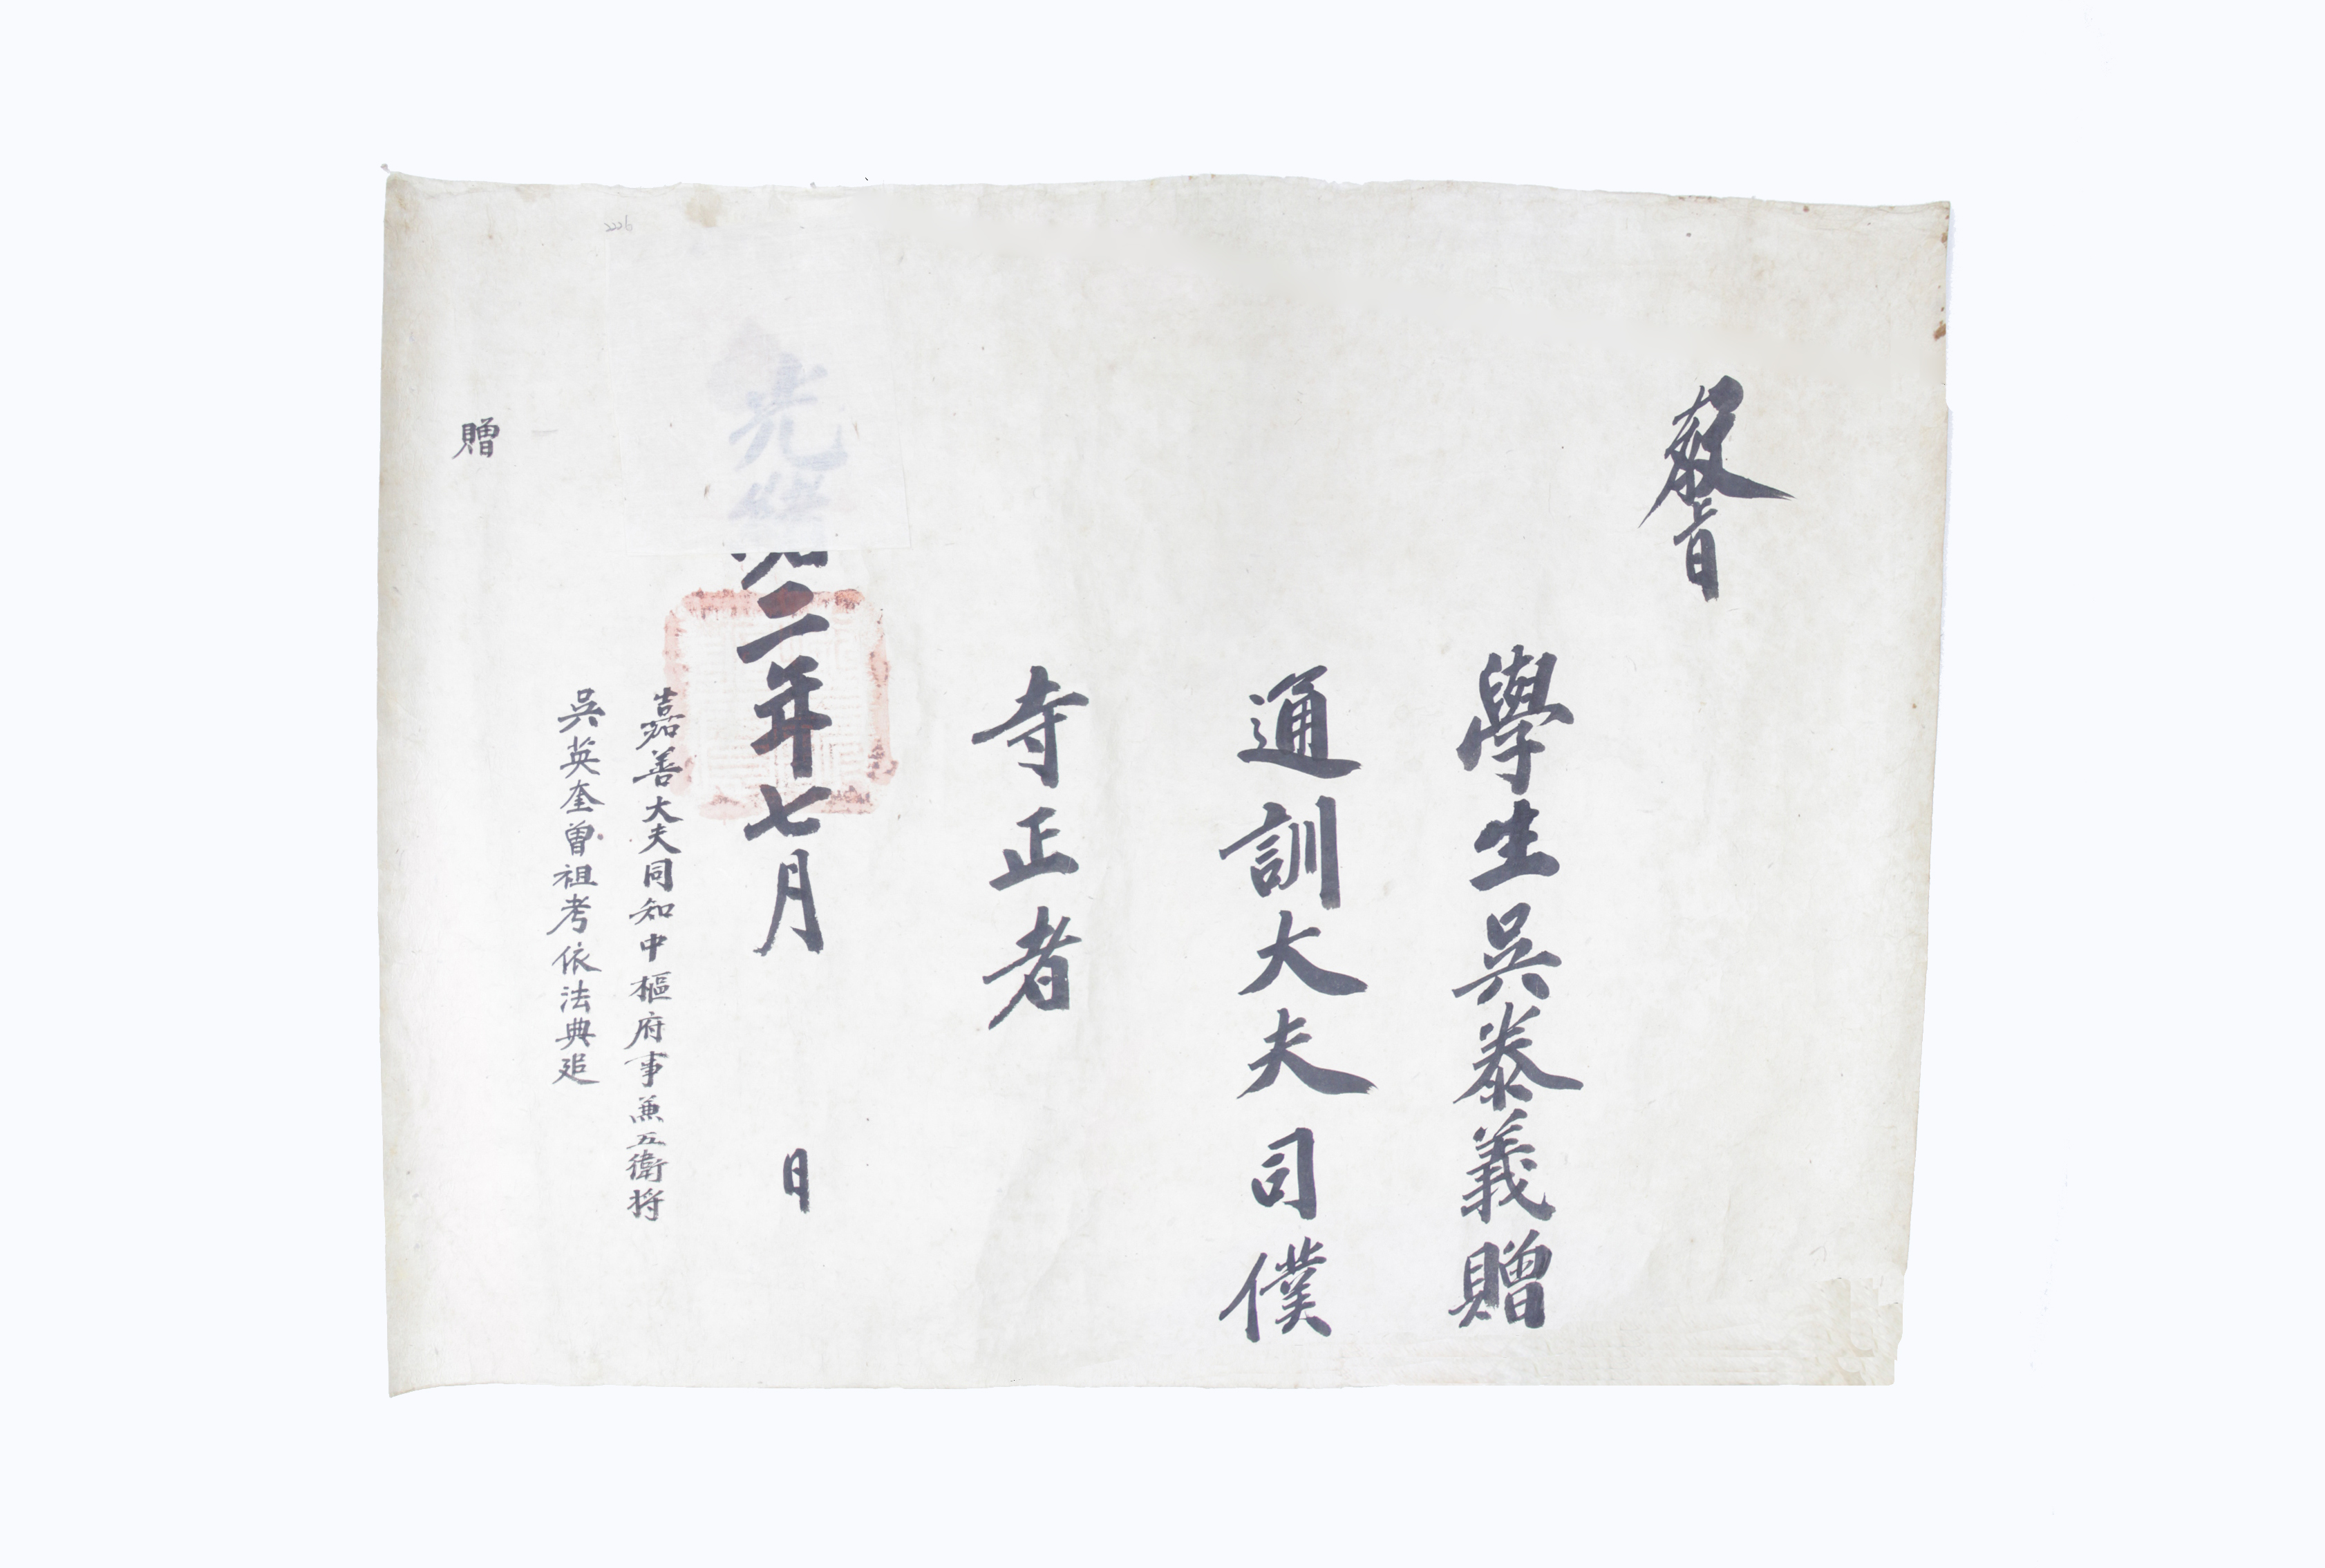 2226
敎旨
學生吳泰義贈
通訓大夫司僕
寺正者
光緖二年七月 日
嘉善大夫同知中樞府事兼五衛將
吳英奎曾祖考依法典追
贈